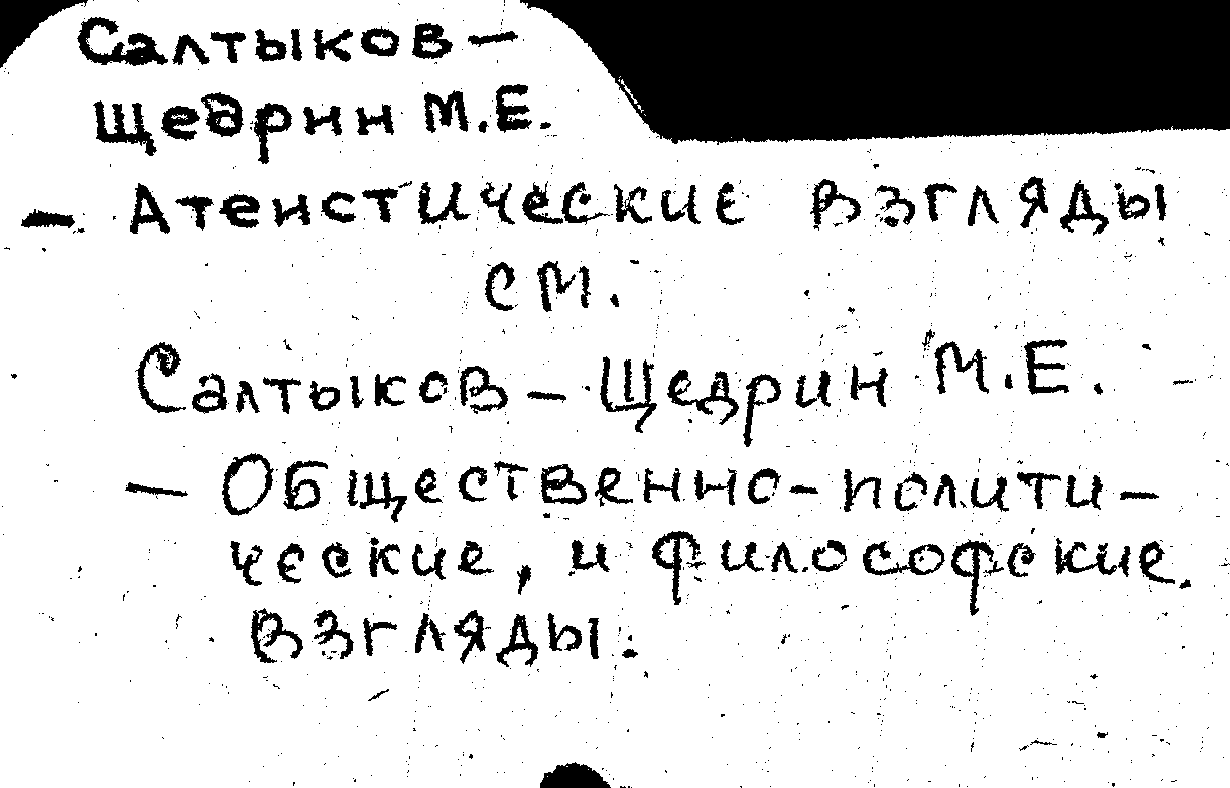 Салтыков –
Щедрин М.Е.
– Атеистические взгляды
см.
Салтыков – Щедрин М.Е.
– Общественно-полити–
ческие, и философские
взгляды.